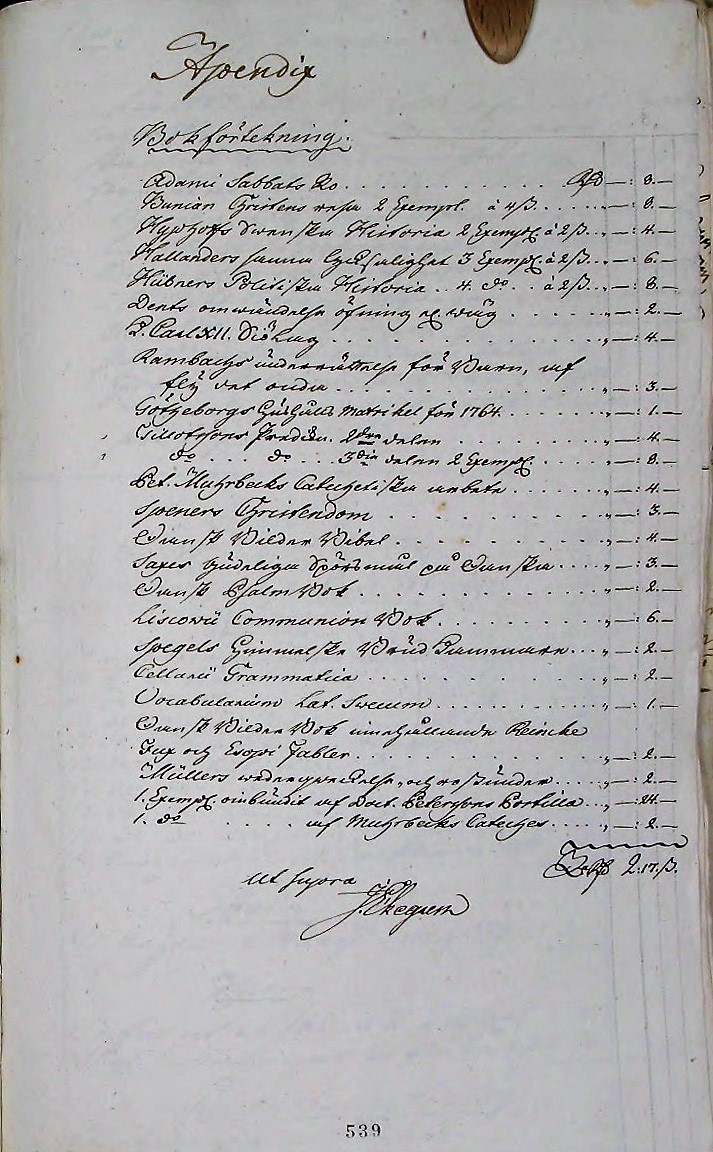 Apendix
Bokförtekning.
Adami Sabbats Ro . . . . . . . . . . . . Rd —: 8.—
Bunian Cristens resa 2 Exempl. á 4 ß. . . . . „—: 8.—
Hyphoffs Swenska Historia 2 Exempl. á 2 ß. . „—: 4.—
Hallanders sanna lycksalighet 3 Exempl. á 2 ß. . „—: 6.—
Hübners Politiska Historia . . 4. do. . á 2 ß. . „—: 8.—
Dents omwändelse öfning ex. wäg . . . . . „—: 2.—
P. Carl XII. Siölag . . . . . . . . . . . „—: 4.—
Rambachs underrättelse för Barn, at
fly det onda . . . . . . . . . . . „—: 3.—
Götheborgs Hushålls Matrikel för 1764. . . . . . „—: 1.—
Tillotsons Predikn. 2dra delen . . . . . . . „—: 4.—
do . . . do . . . 3dia delen 2 Exempl. . . . . „—: 8.—
Pet. Muhrbecks Catechetiska arbete . . . . . . „—: 4.—
Speners Cristendom . . . . . . . . . „—: 3.—
Dansk Bilder Bibel . . . . . . . . . „—: 4.—
Saxes Gudeliga Spörsmål på Danska . . . . „—: 3.—
Dansk Psalm Bok . . . . . . . . . . . „—: 2.—
Liscovii Communion Bok . . . . . . . . „—: 6.—
Spegels Himmelske Brud Kammare . . . „—: 2.—
Cellarii Grammatica . . . . . . . . . . „—: 2.—
Vocabularium Lat. Svecum . . . . . . . . „—: 1.—
Dansk Bilder Bok innehållande Reincke
Fux och Esopi Fabler . . . . . . . . . . „—: 2.—
Müllers wederqweckelse, och restunder . . . . „—: 2.—
1. Exempl. oinbundit af Doct. Petersons Postilla . . „—: 24.—
1. do . . . . . af Muhrbecks Cateches . . . . „—: 2.—
Rd 2:17.ß.
Ut supra
539